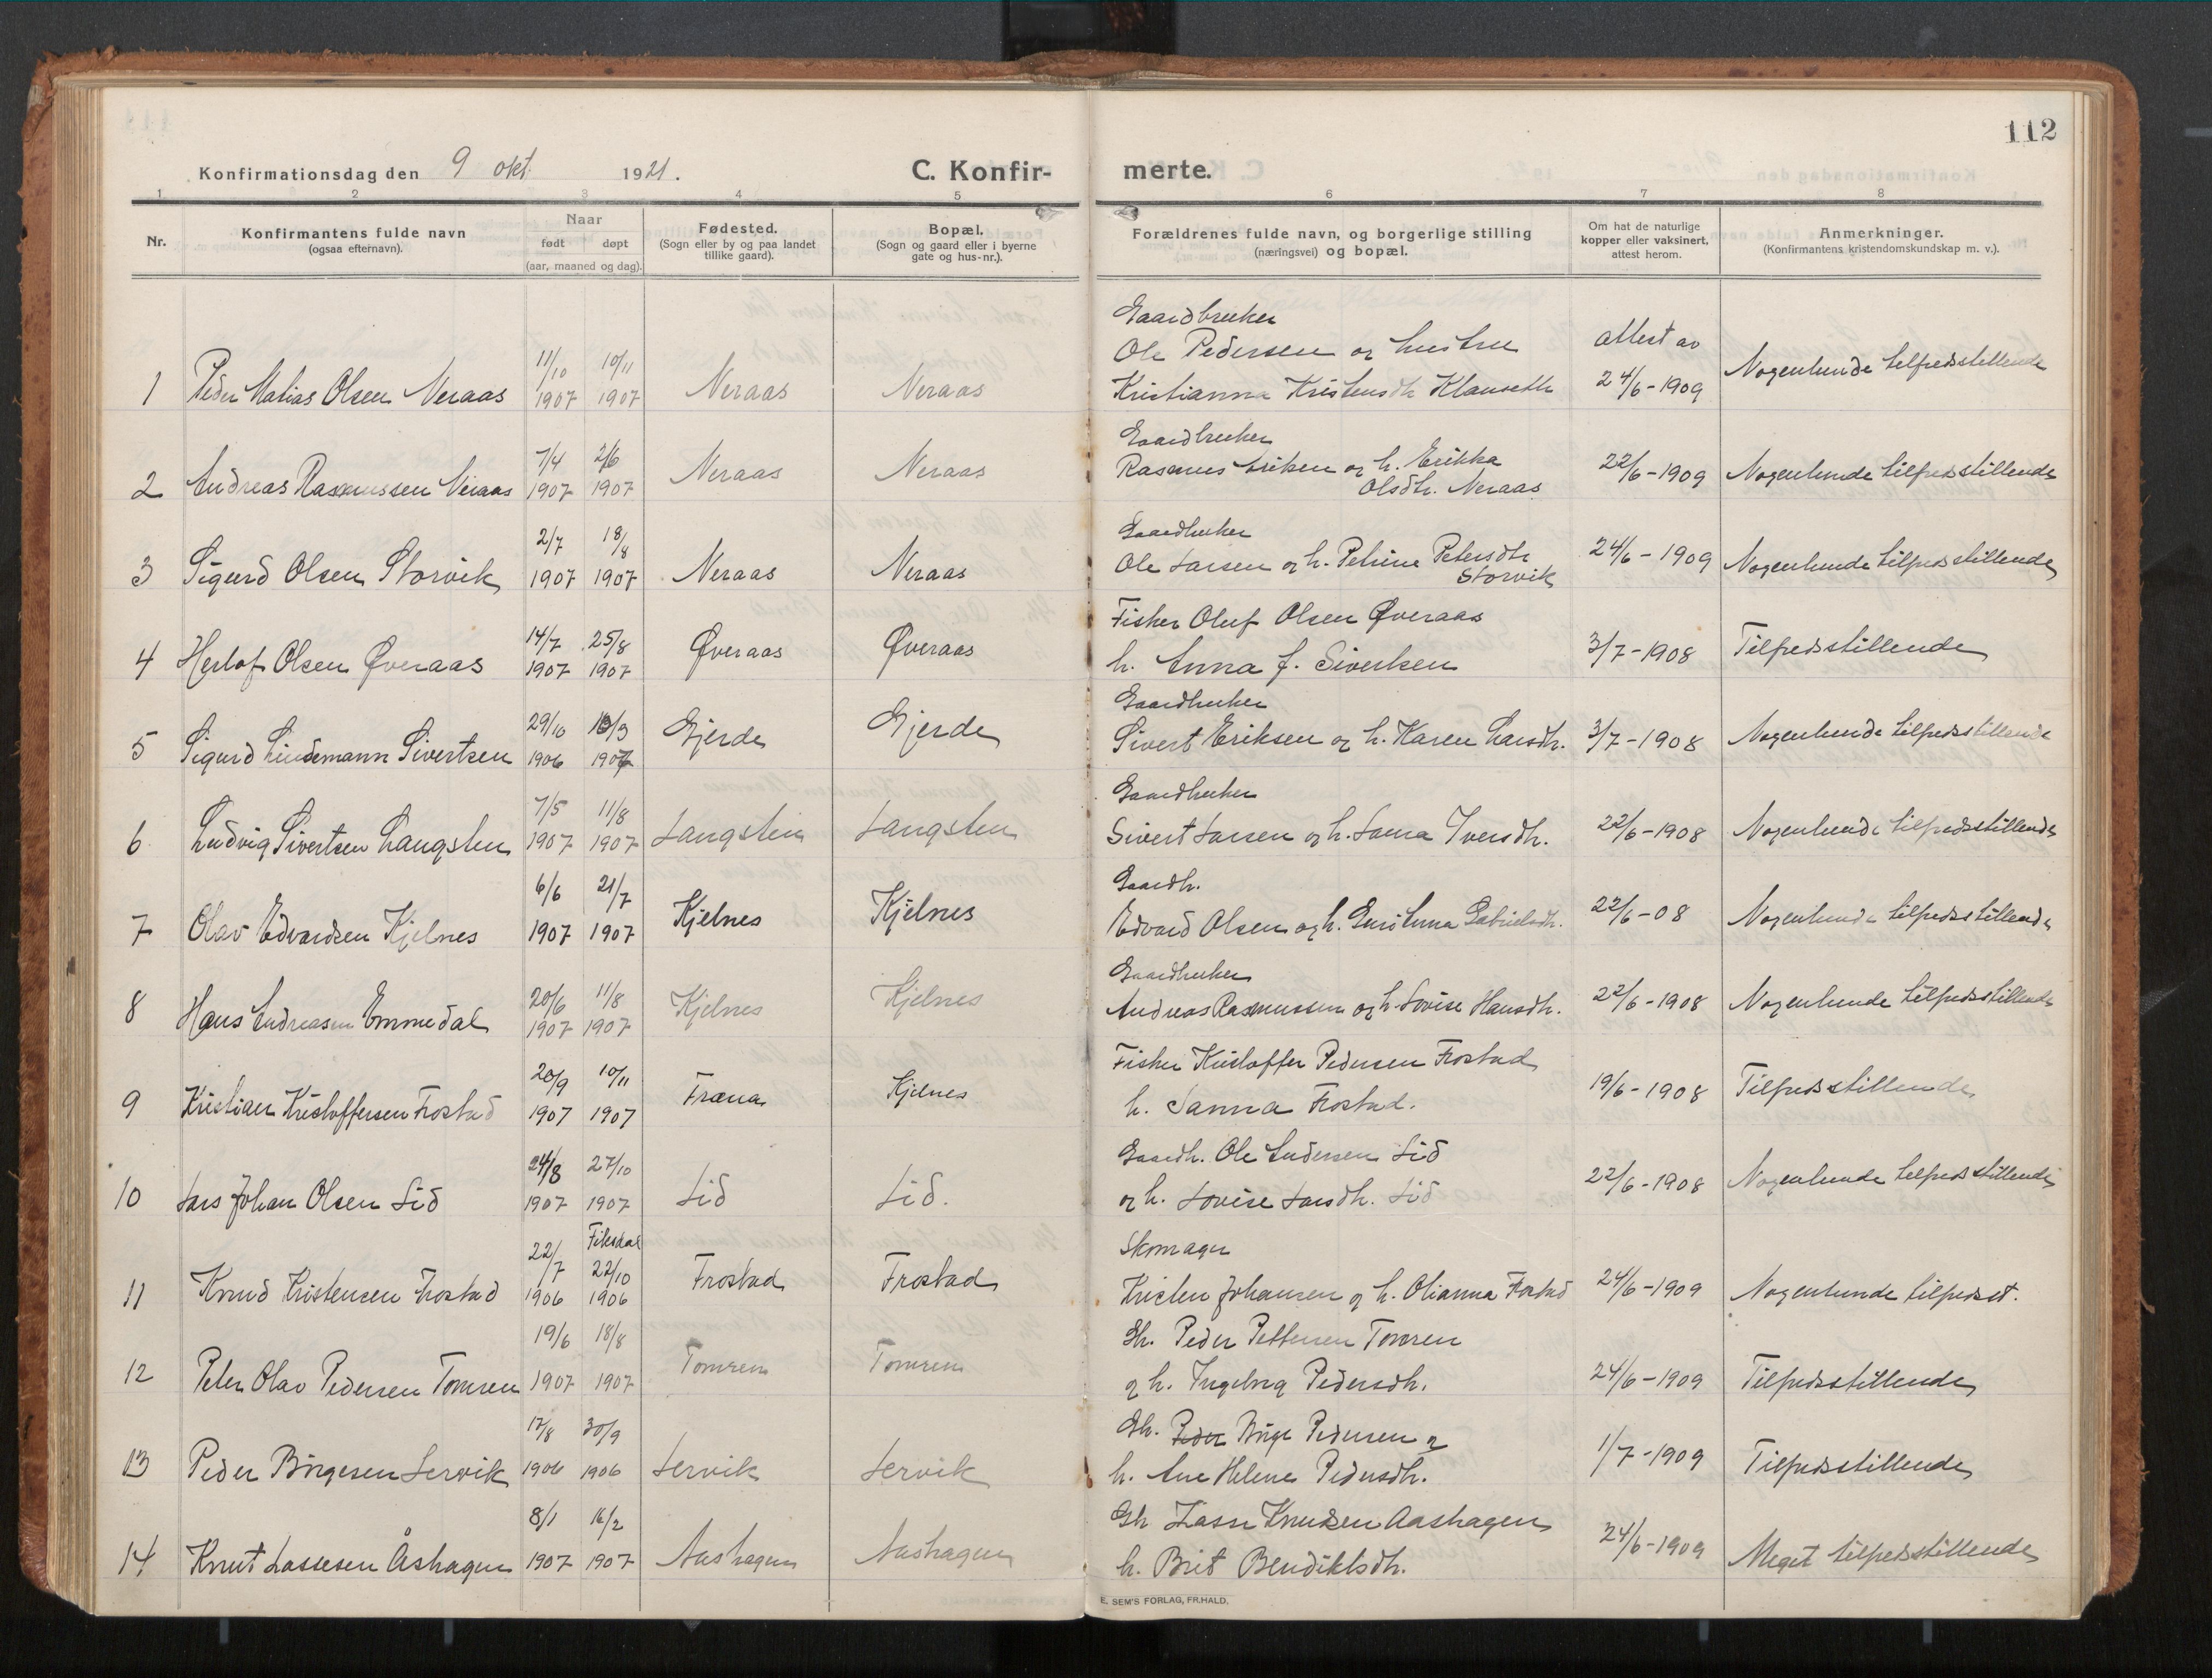 112
Konfirmationsdag den 9 okt. 1921. C. Konfir- merte.
1 2 3 4 5 6 7 8
Nr. Konfirmantens fulde navn (ogsaa efternavn). Naar født døpt (aar, maaned og dag). Fødested. (Sogn eller by og paa landet tillike gaard). Bopæl. (Sogn og gaard eller i byerne gate og hus-nr.). Forældrenes fulde navn, og borgerlige stilling (næringsvei) og bopæl. Om hat de naturlige kopper eller vaksinert, attest herom. Anmerkninger. (Konfirmantens kristendomskundskap m. v.).
Gaardbruker
11/10 10/11 Ole Pedersen og hustru attest av
1 Peder Matias Olsen Neraas 1907 1907 Neraas Neraas Kristianna Kristensdtr Klauseth 24/6-1909 Nogenlunde tilfredsstillende
Gaardbruker
7/4 2/6 Rasmus Eriksen og h. Erikka
2 Andreas Rasmussen Neraas 1907 1907 Neraas Neraas Olsdtr. Neraas 22/6-1909 Nogenlunde tilfredsstillende
Gaardbruker
2/7 18/8 Ole Larsen og h. Petrine Petersdtr
3 Sigurd Olsen Storvik 1907 1907 Neraas Neraas Storvik 24/6-1909 Nogenlunde tilfredsstillende
14/7 25/8 Fisker Oluf Olsen Øveraas
4 Herlof Olsen Øveraas 1907 1907 Øveraas Øveraas h. Anna f. Sivertsen 3/7-1908 Tilfredsstillende
29/10 /3 Gaardbruker
5 Sigurd Lindemann Sivertsen 1906 1907 Gjerde Gjerde Sivert Eriksen og h. Karen Larsdtr. 3/7-1908 Nogenlunde tilfredsstillende
7/5 11/8 Gaardbruker
6 Ludvig Sivertsen Langsten 1907 1907 Langsten Langsten Sivert Larsen og h. Iversdtr. 22/6-1908 Nogenlunde tilfredsstillende
6/6 21/7 Gaardb.
7 Olav Edvardsen Kjelnes 1907 1907 Kjelnes Kjelnes Edvard Olsen og h. Gabrielsdtr. 22/6-08 Nogenlunde tilfredsstillende
20/6 11/8 Gaardbruker
8 Hans Andreasen Emmedal 1907 1907 Kjelnes Kjelnes Andreas Rasmussen og h. Lovise Hansdtr. 22/6-1908 Nogenlunde tilfredsstillende
20/9 10/11 Fisker Kristoffer Pedersen Frostad
9 Kristian Kristoffersen Frostad 1907 1907 Fræna Kjelnes h. Sanna Frostad. 19/6-1908 Tilfredsstillende
24/8 27/10 Gaardb. Ole Andersen Lid
10 Lars Johan Olsen Lid 1907 1907 Lid Lid. og h. Lovise Larsdtr. Lid 22/6-1908 Nogenlunde tilfredsstillende
22/7 Fiksdal 22/10 Skomager
11 Knud Kristensen Frostad 1906 1906 Frostad Frostad Kristen Johansen og h. Olianna Frostad 24/6-1909 Nogenlunde tilfredsst.
19/6 18/8 Gb. Peder Pettersen Tomren
12 Peter Olav Pedersen Tomren 1907 1907 Tomren Tomren og h. Ingeborg Pedersdtr. 24/6-1909 Tilfredsstillende
17/8 30/9 Gb. Peder Birge Pedersen og
13 Peder Birgesen Lervik 1906 1906 Lervik Lervik h. Ane Helene Pedersdtr. 1/7-1909 Tilfredsstillende
8/1 16/2 Gb Lasse Knudsen Aashagen
14 Knut Lassesen Åshagen 1907 1907 Aashagen Aashagen h. Brit Bendiktsdtr. 24/6-1909 Meget tilfredsstillende
E. SEM'S FORLAG, FR.HALD.